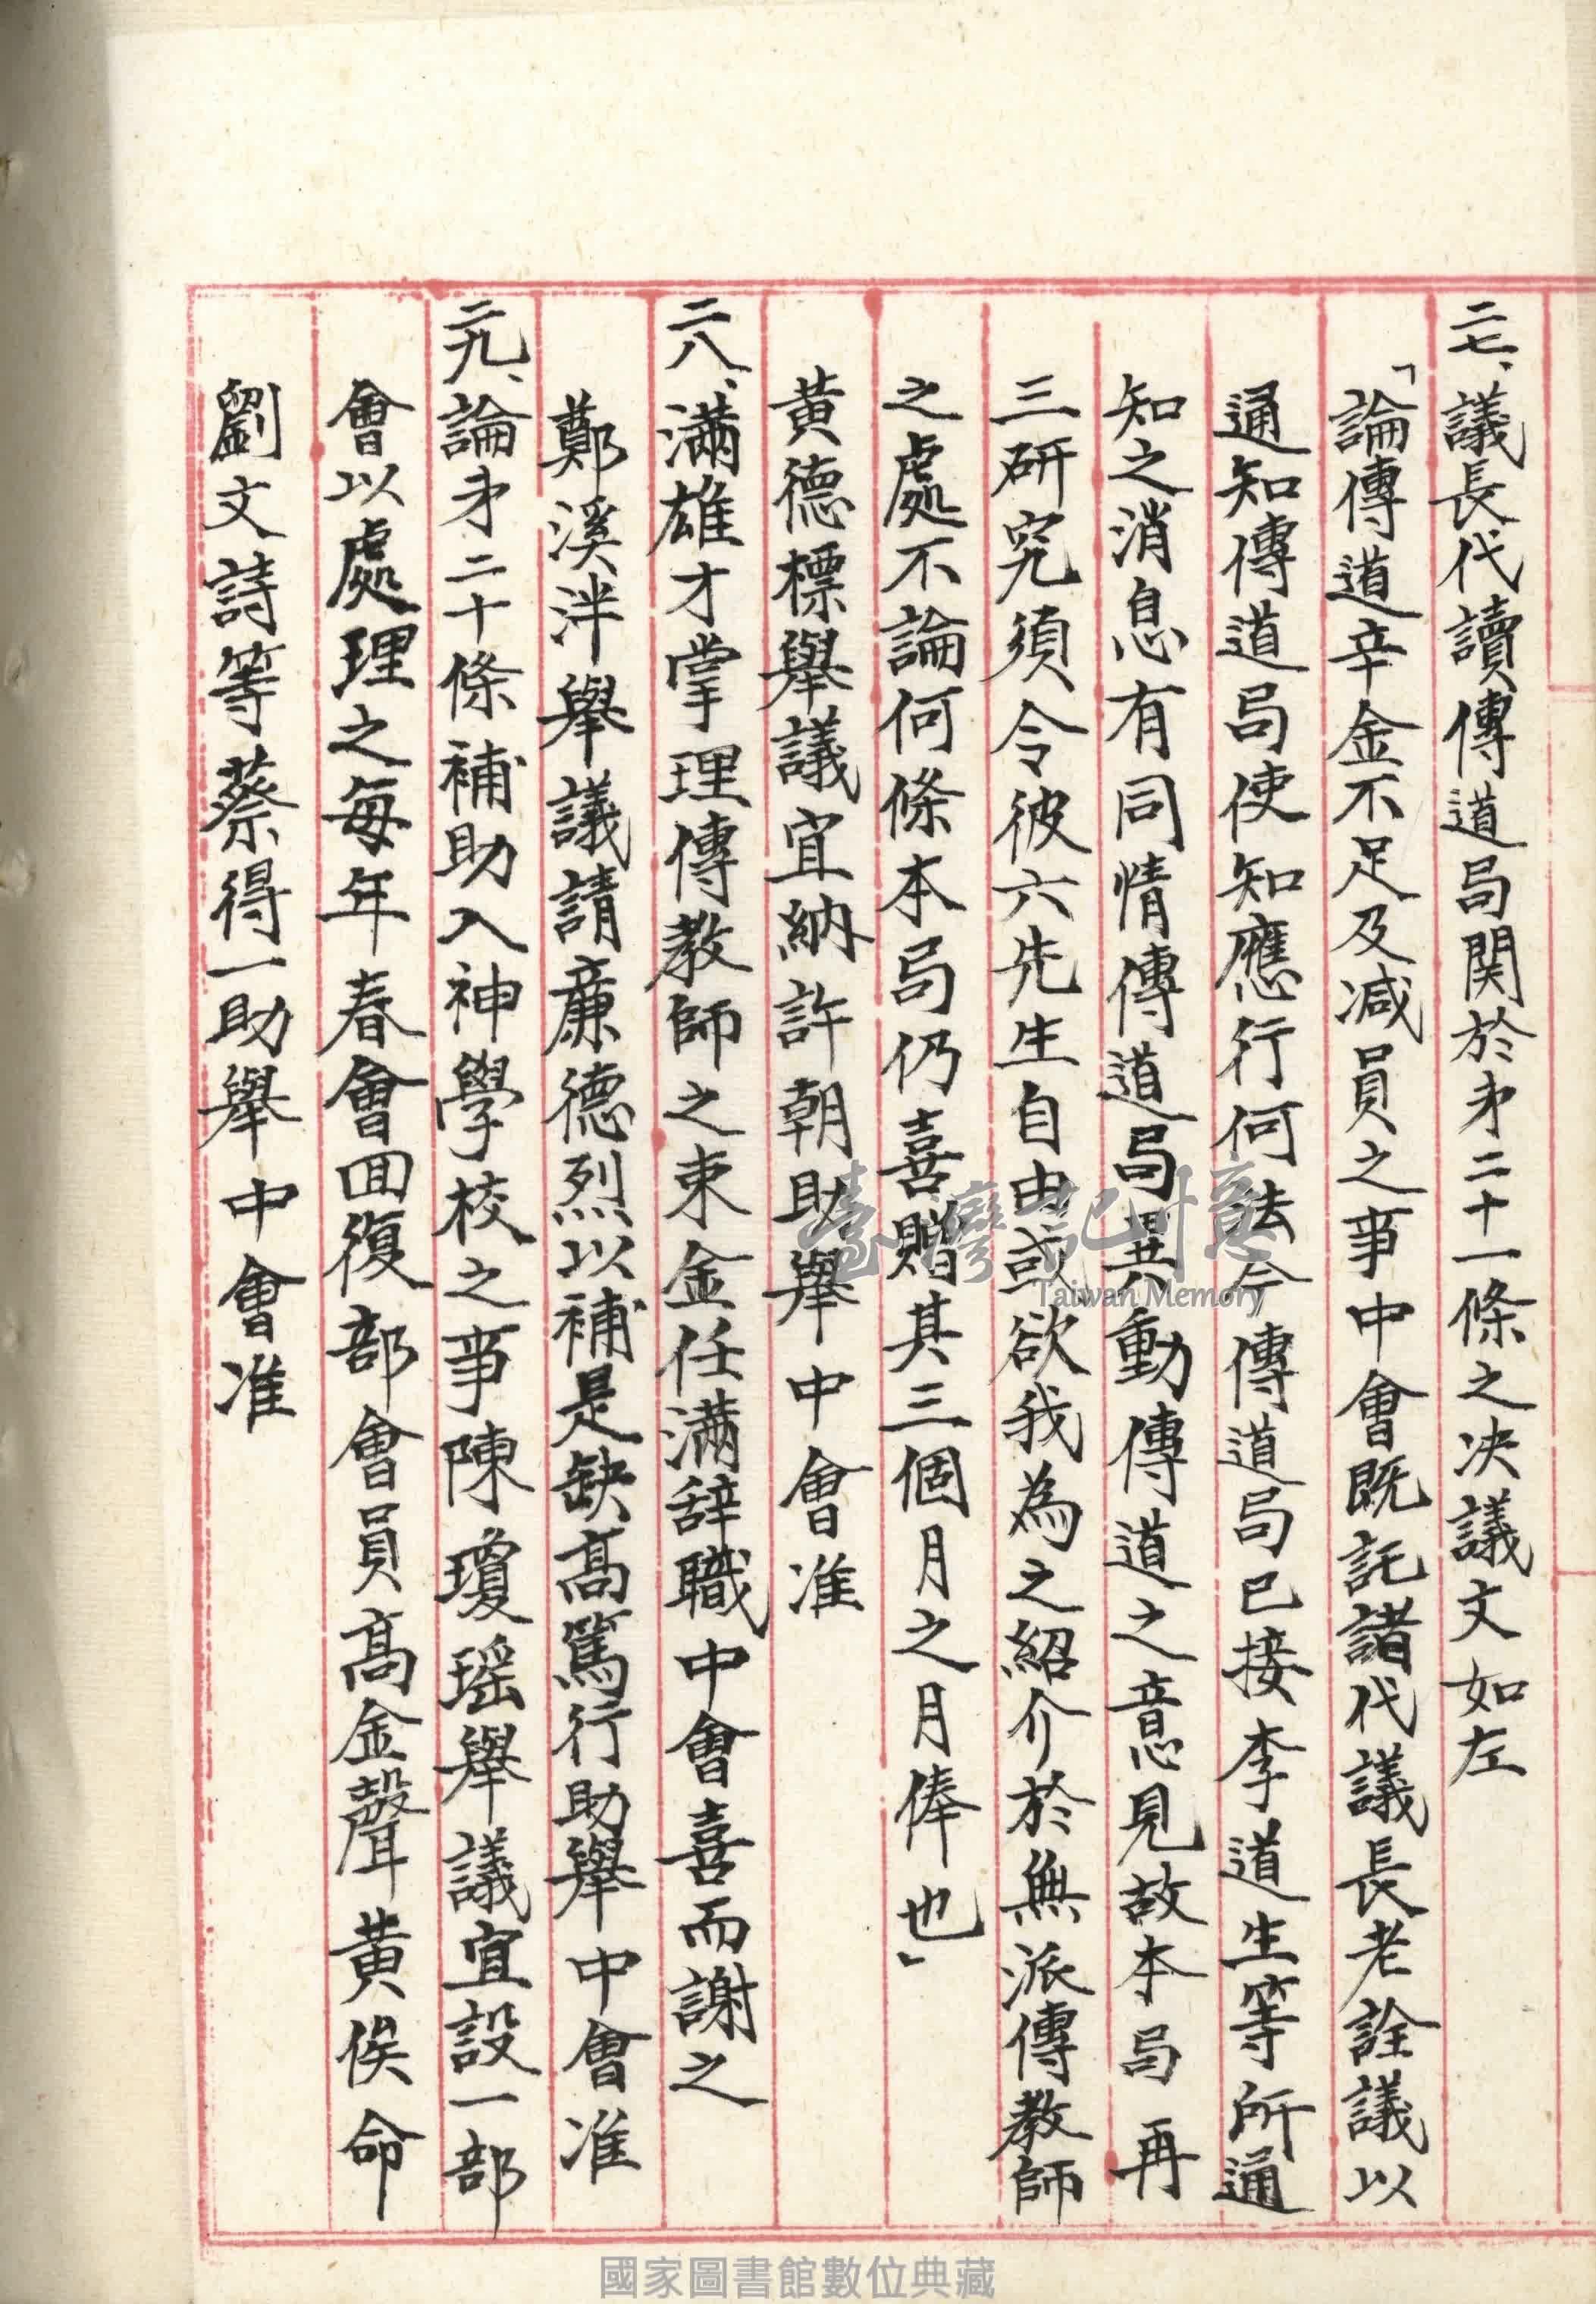 二七、議長代讀傳道局関於㐧二十一條之决議文如左
「論傳道辛金不足及减員之事中會既託諸代議長老詮議以
通知傳道局使知應行何法今傳道局已接李道生等所通
知之消息有同情傳道局異動傳道之意見故本局再
三研究須令彼六先生自由或欲我為之紹介於無派傳教師
之處不論何條本局仍喜贈其三個月之月俸也」
黃德標舉議宜納許朝助舉中會准
二八、滿雄才掌理傳教師之束金任滿辞職中會喜而謝之
鄭溪泮舉議請廉德烈以補是缺高篤行助舉中會准
二九、論㐧二十條補助入神學校之事陳瓊瑶舉議宜設一部
會以處理之每年春會回復部會員高金聲黃俟命
劉文詩等蔡得一助舉中會准
臺灣記憶
Taiwan Memory
國家圖書館數位典藏